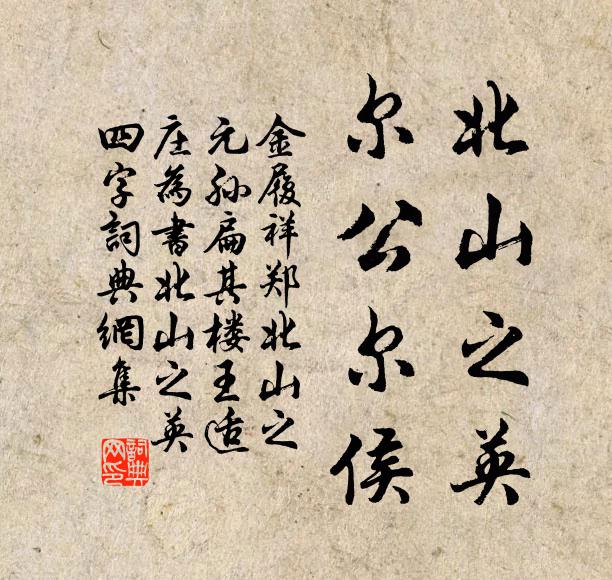 北山之英
尔公尔侯
金履祥郑北山之
元孙扁其楼王适
庄為書北山之英
四字詞典網集
詞典
网印